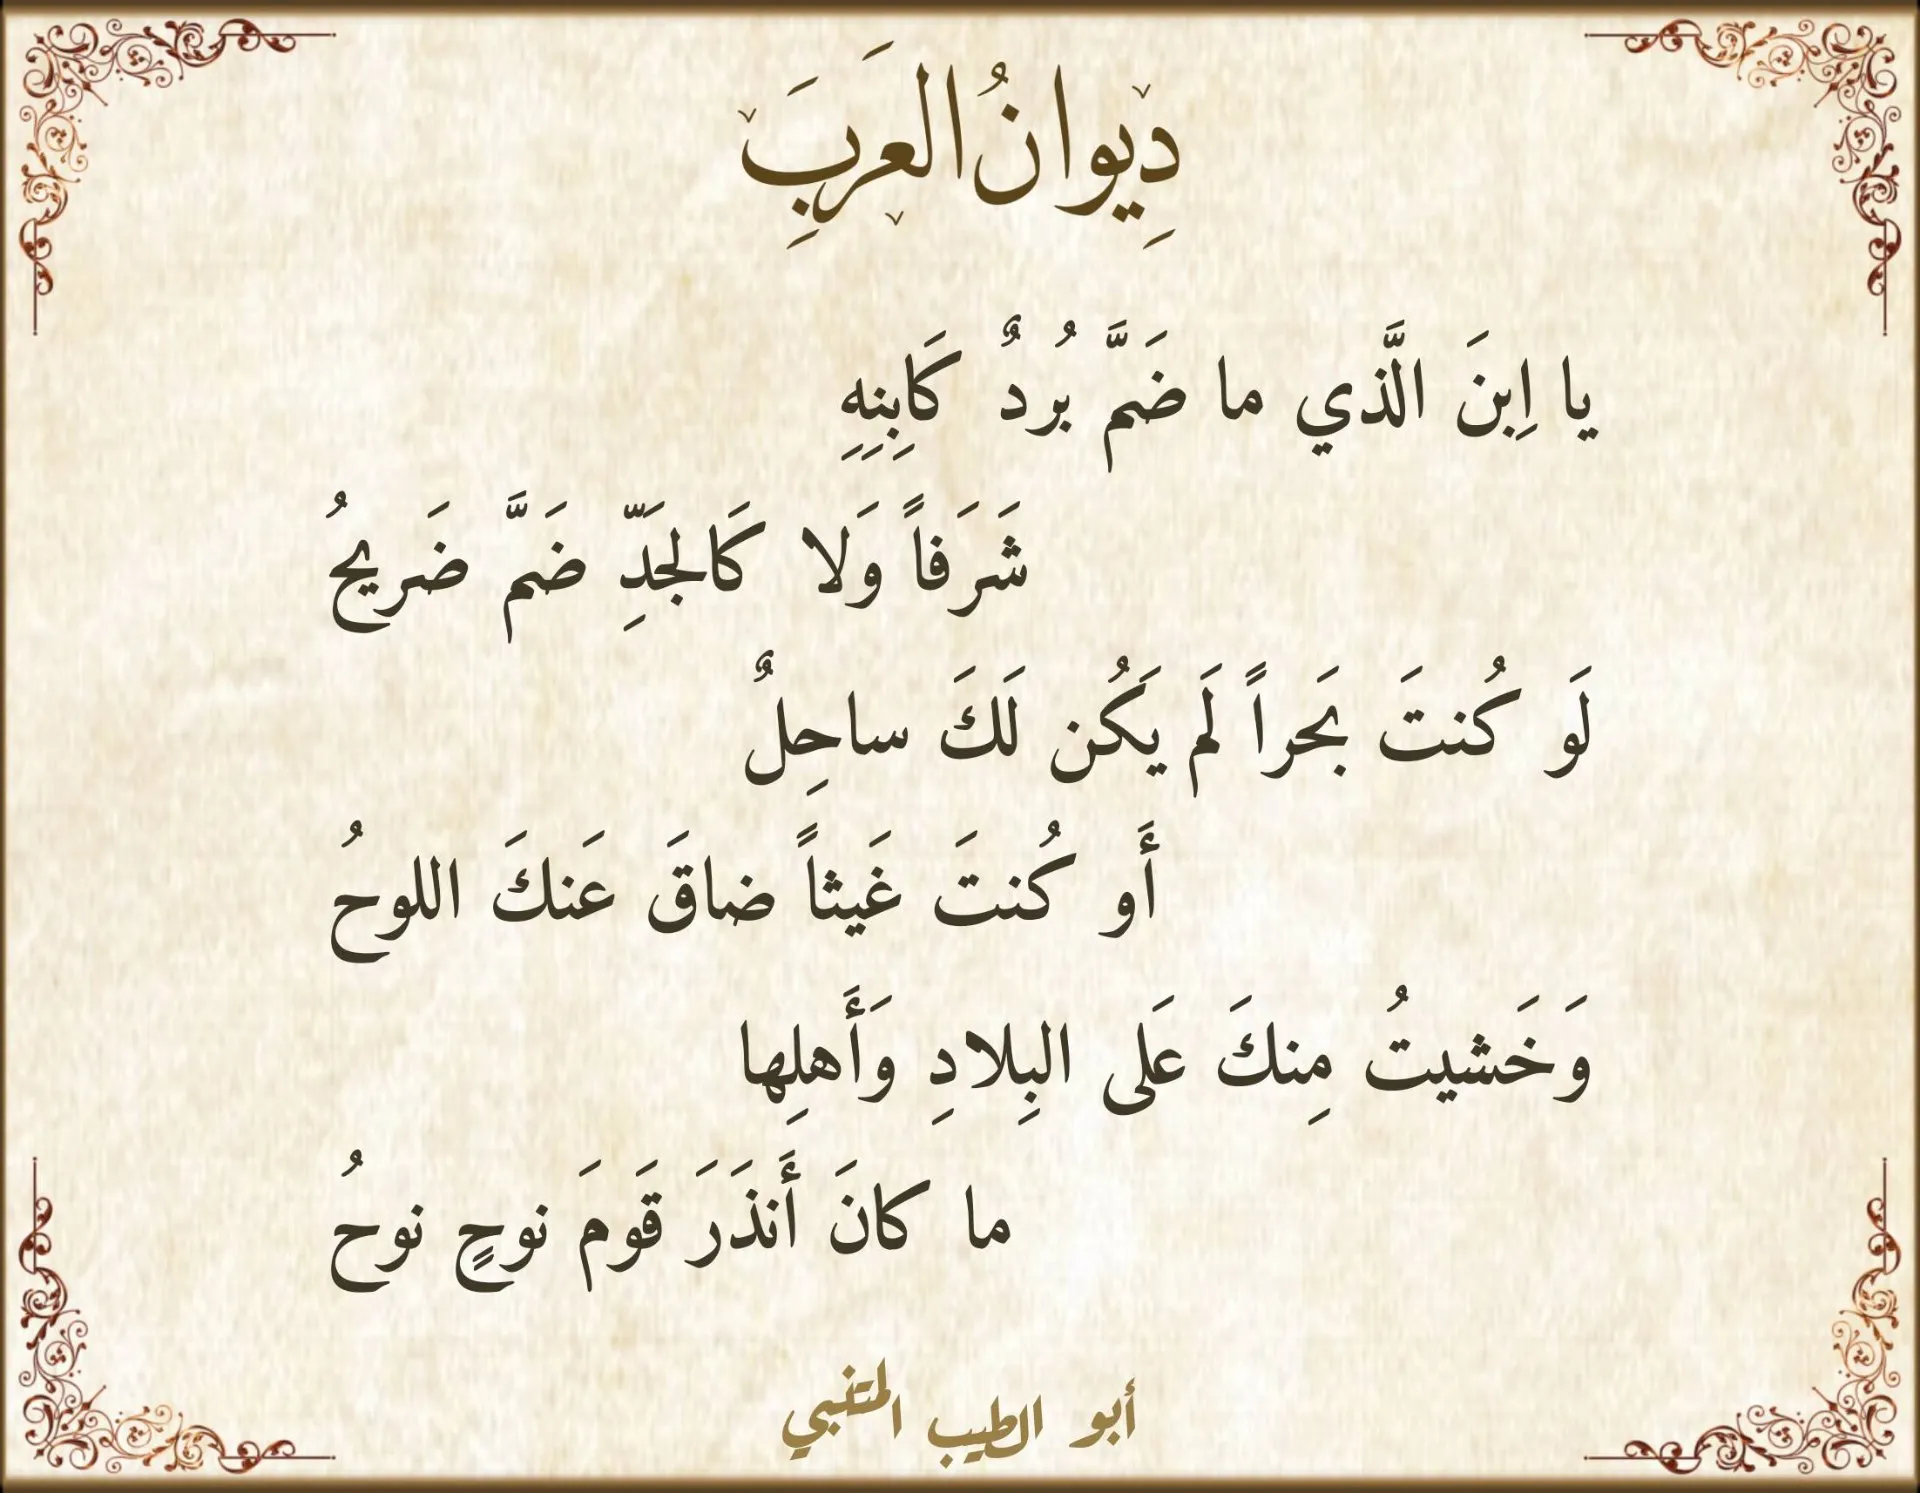 دِيوانُ العَرَبِ
يا اِبنَ الَّذي ما ضَمَّ بُردٌ كَاِبنِهِ
شَرَفاً وَلا كَالجَدِّ ضَمَّ ضَريحُ
لَو كُنتَ بَحراً لَم يَكُن لَكَ ساحِلٌ
أَو كُنتَ غَيثاً ضاقَ عَنكَ اللوحُ
وَخَشيتُ مِنكَ عَلى البِلادِ وَأَهلِها
ما كانَ أَنذَرَ قَومَ نوحٍ نوحُ
أبو الطيب المتنبي